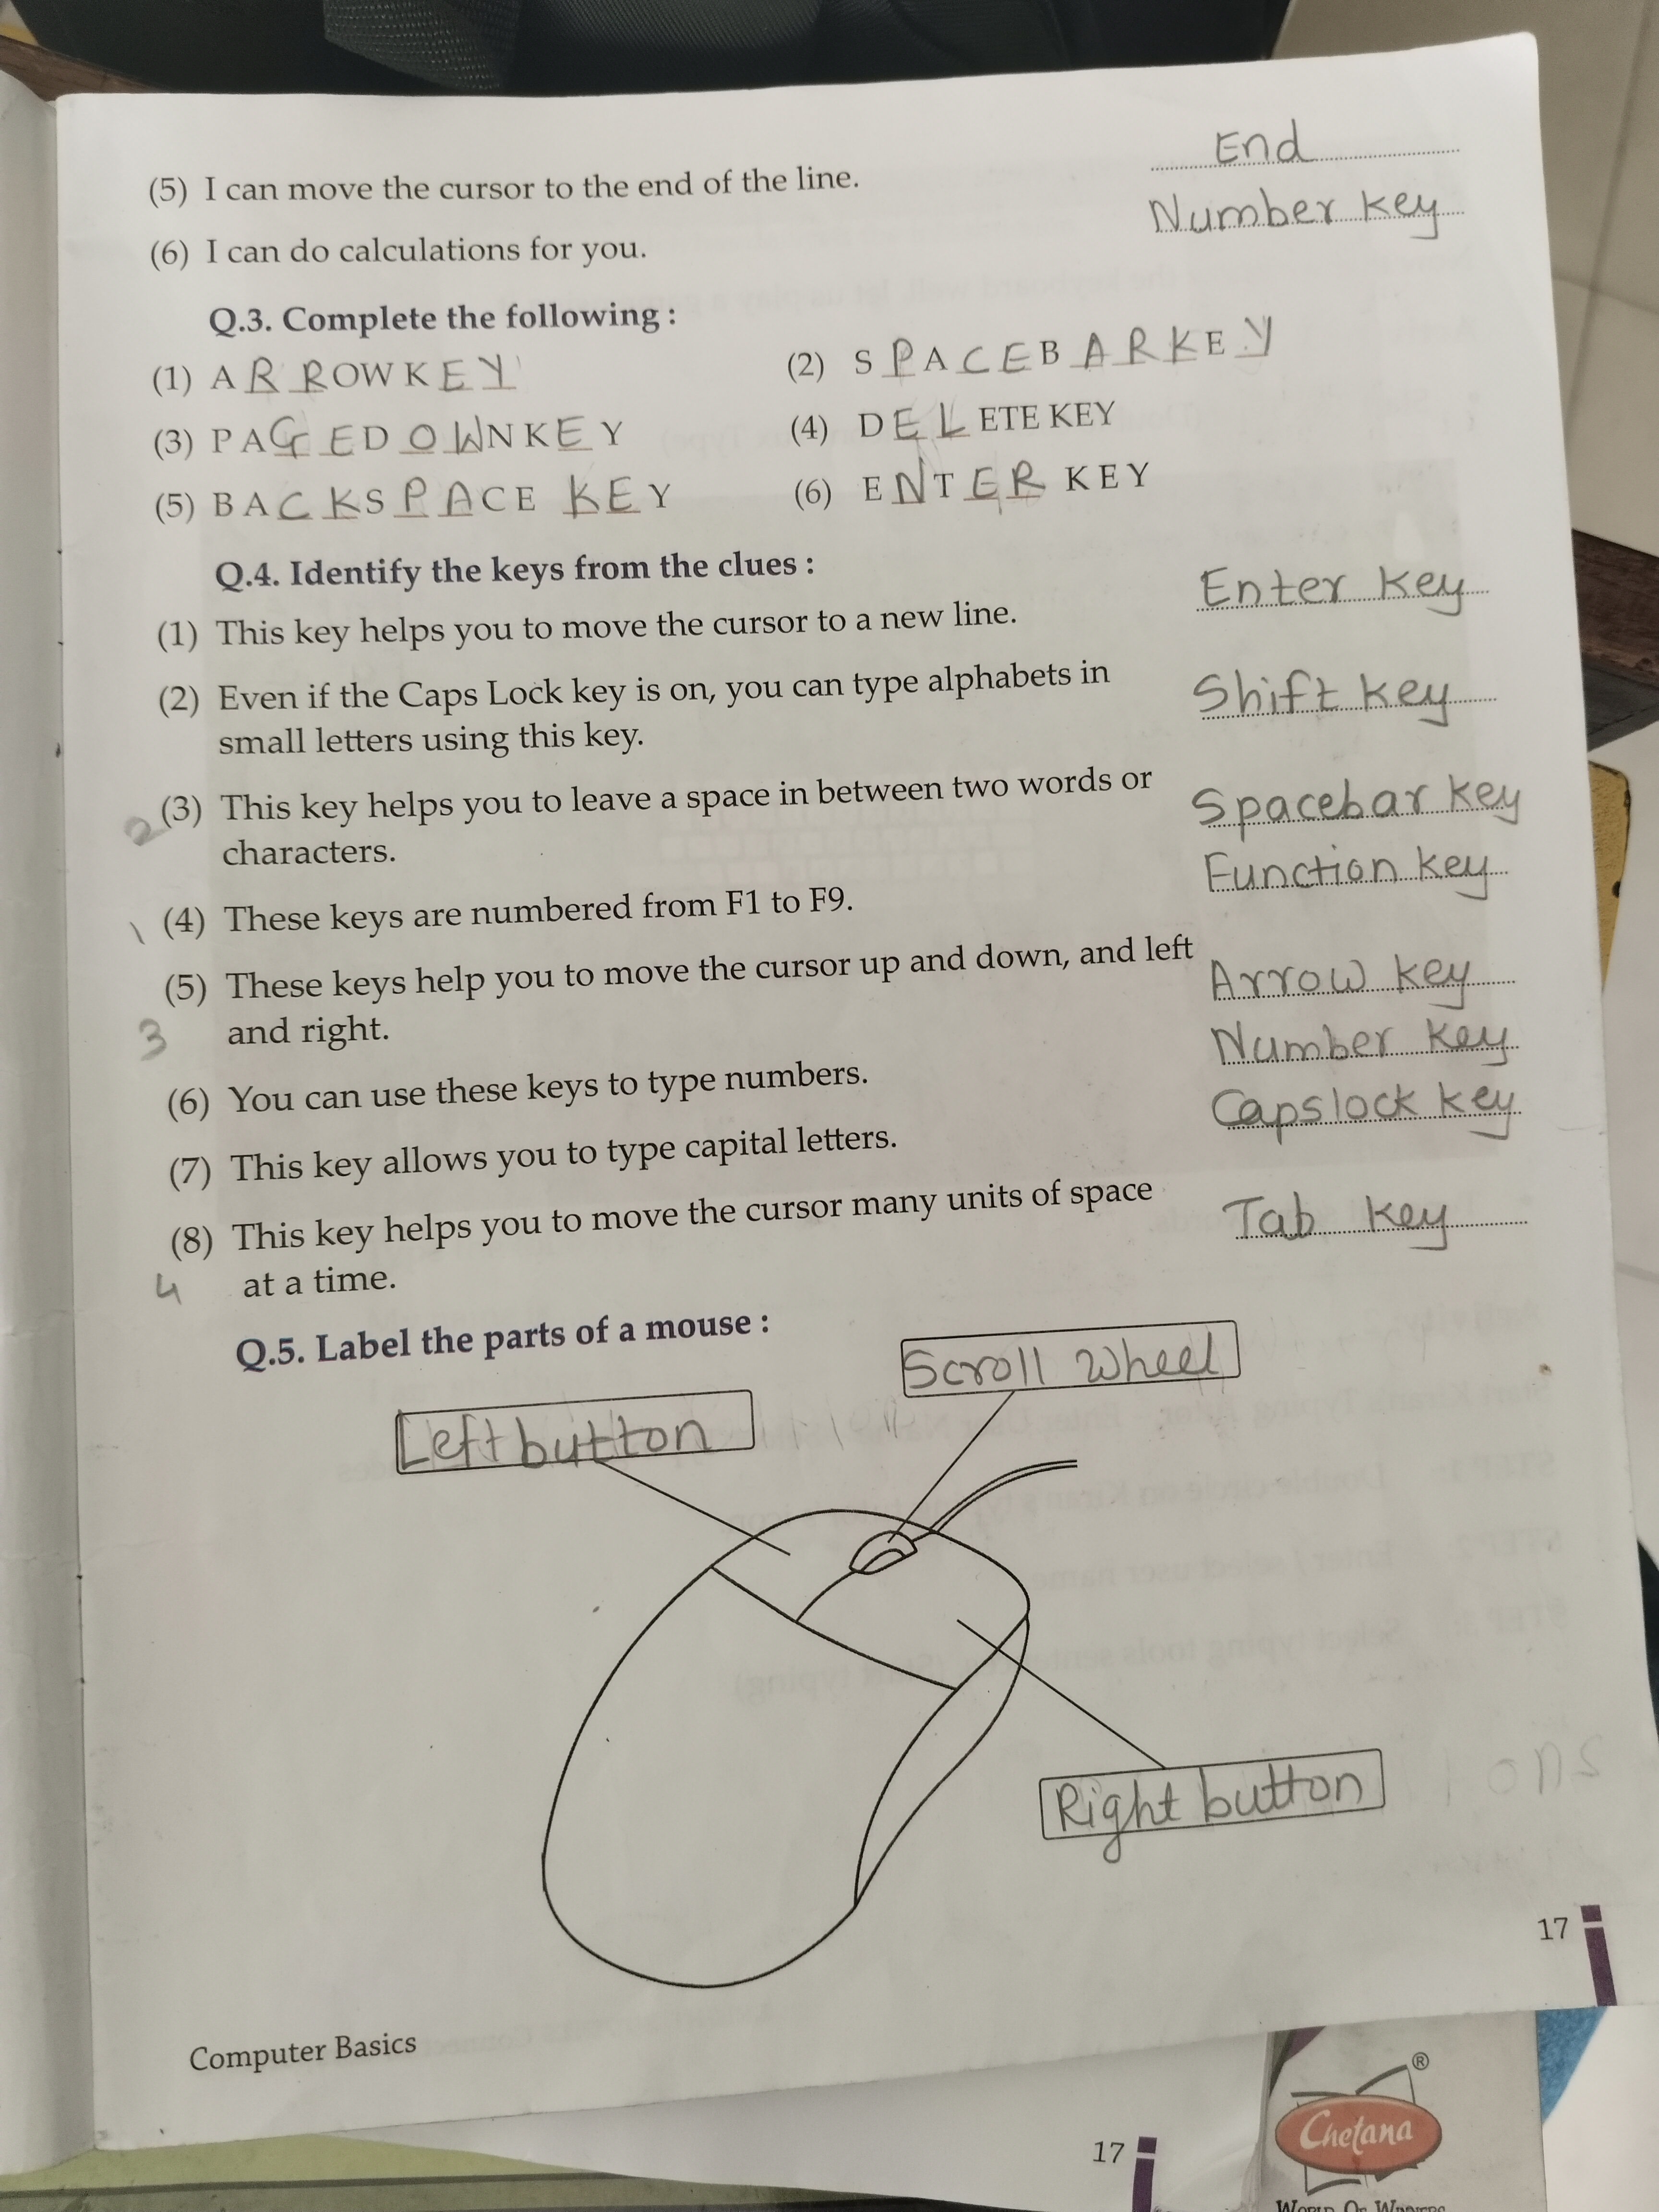 End
(5) I can move the cursor to the end of the line.
Number key
(6) I can do calculations for you.
Q.3. Complete the following :
(1) A R R OW K E Y
(2) S P A C E B A R K E Y
(3) P A G E D O W N K E Y
(4) D E L ETE KEY
(5) B A C K S P A C E K E Y
(6) E N T E R K E Y
Q.4. Identify the keys from the clues :
(1) This key helps you to move the cursor to a new line.
Enter key
(2) Even if the Caps Lock key is on, you can type alphabets in
small letters using this key.
Shift key
2 (3) This key helps you to leave a space in between two words or
characters.
Spacebar key
1 (4) These keys are numbered from F1 to F9.
Function key
(5) These keys help you to move the cursor up and down, and left
3 and right.
Arrow key
(6) You can use these keys to type numbers.
Number key
(7) This key allows you to type capital letters.
Capslock key
(8) This key helps you to move the cursor many units of space
4 at a time.
Tab key
Q.5. Label the parts of a mouse :
Scroll wheel
Left button
Right button
17
Computer Basics
17
Chetana ®